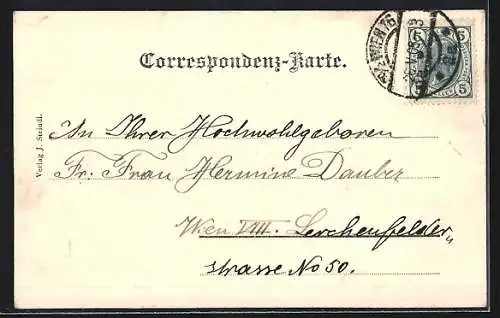 Correspondenz-Karte.
WIEN 76
5 5
5 5
Verlag J. Steindl.
An Ihrer Hochwohlgeboren
Fr. Frau Hermine Dauber
Wien VIII. Lerchenfelder„
strasse No 50.